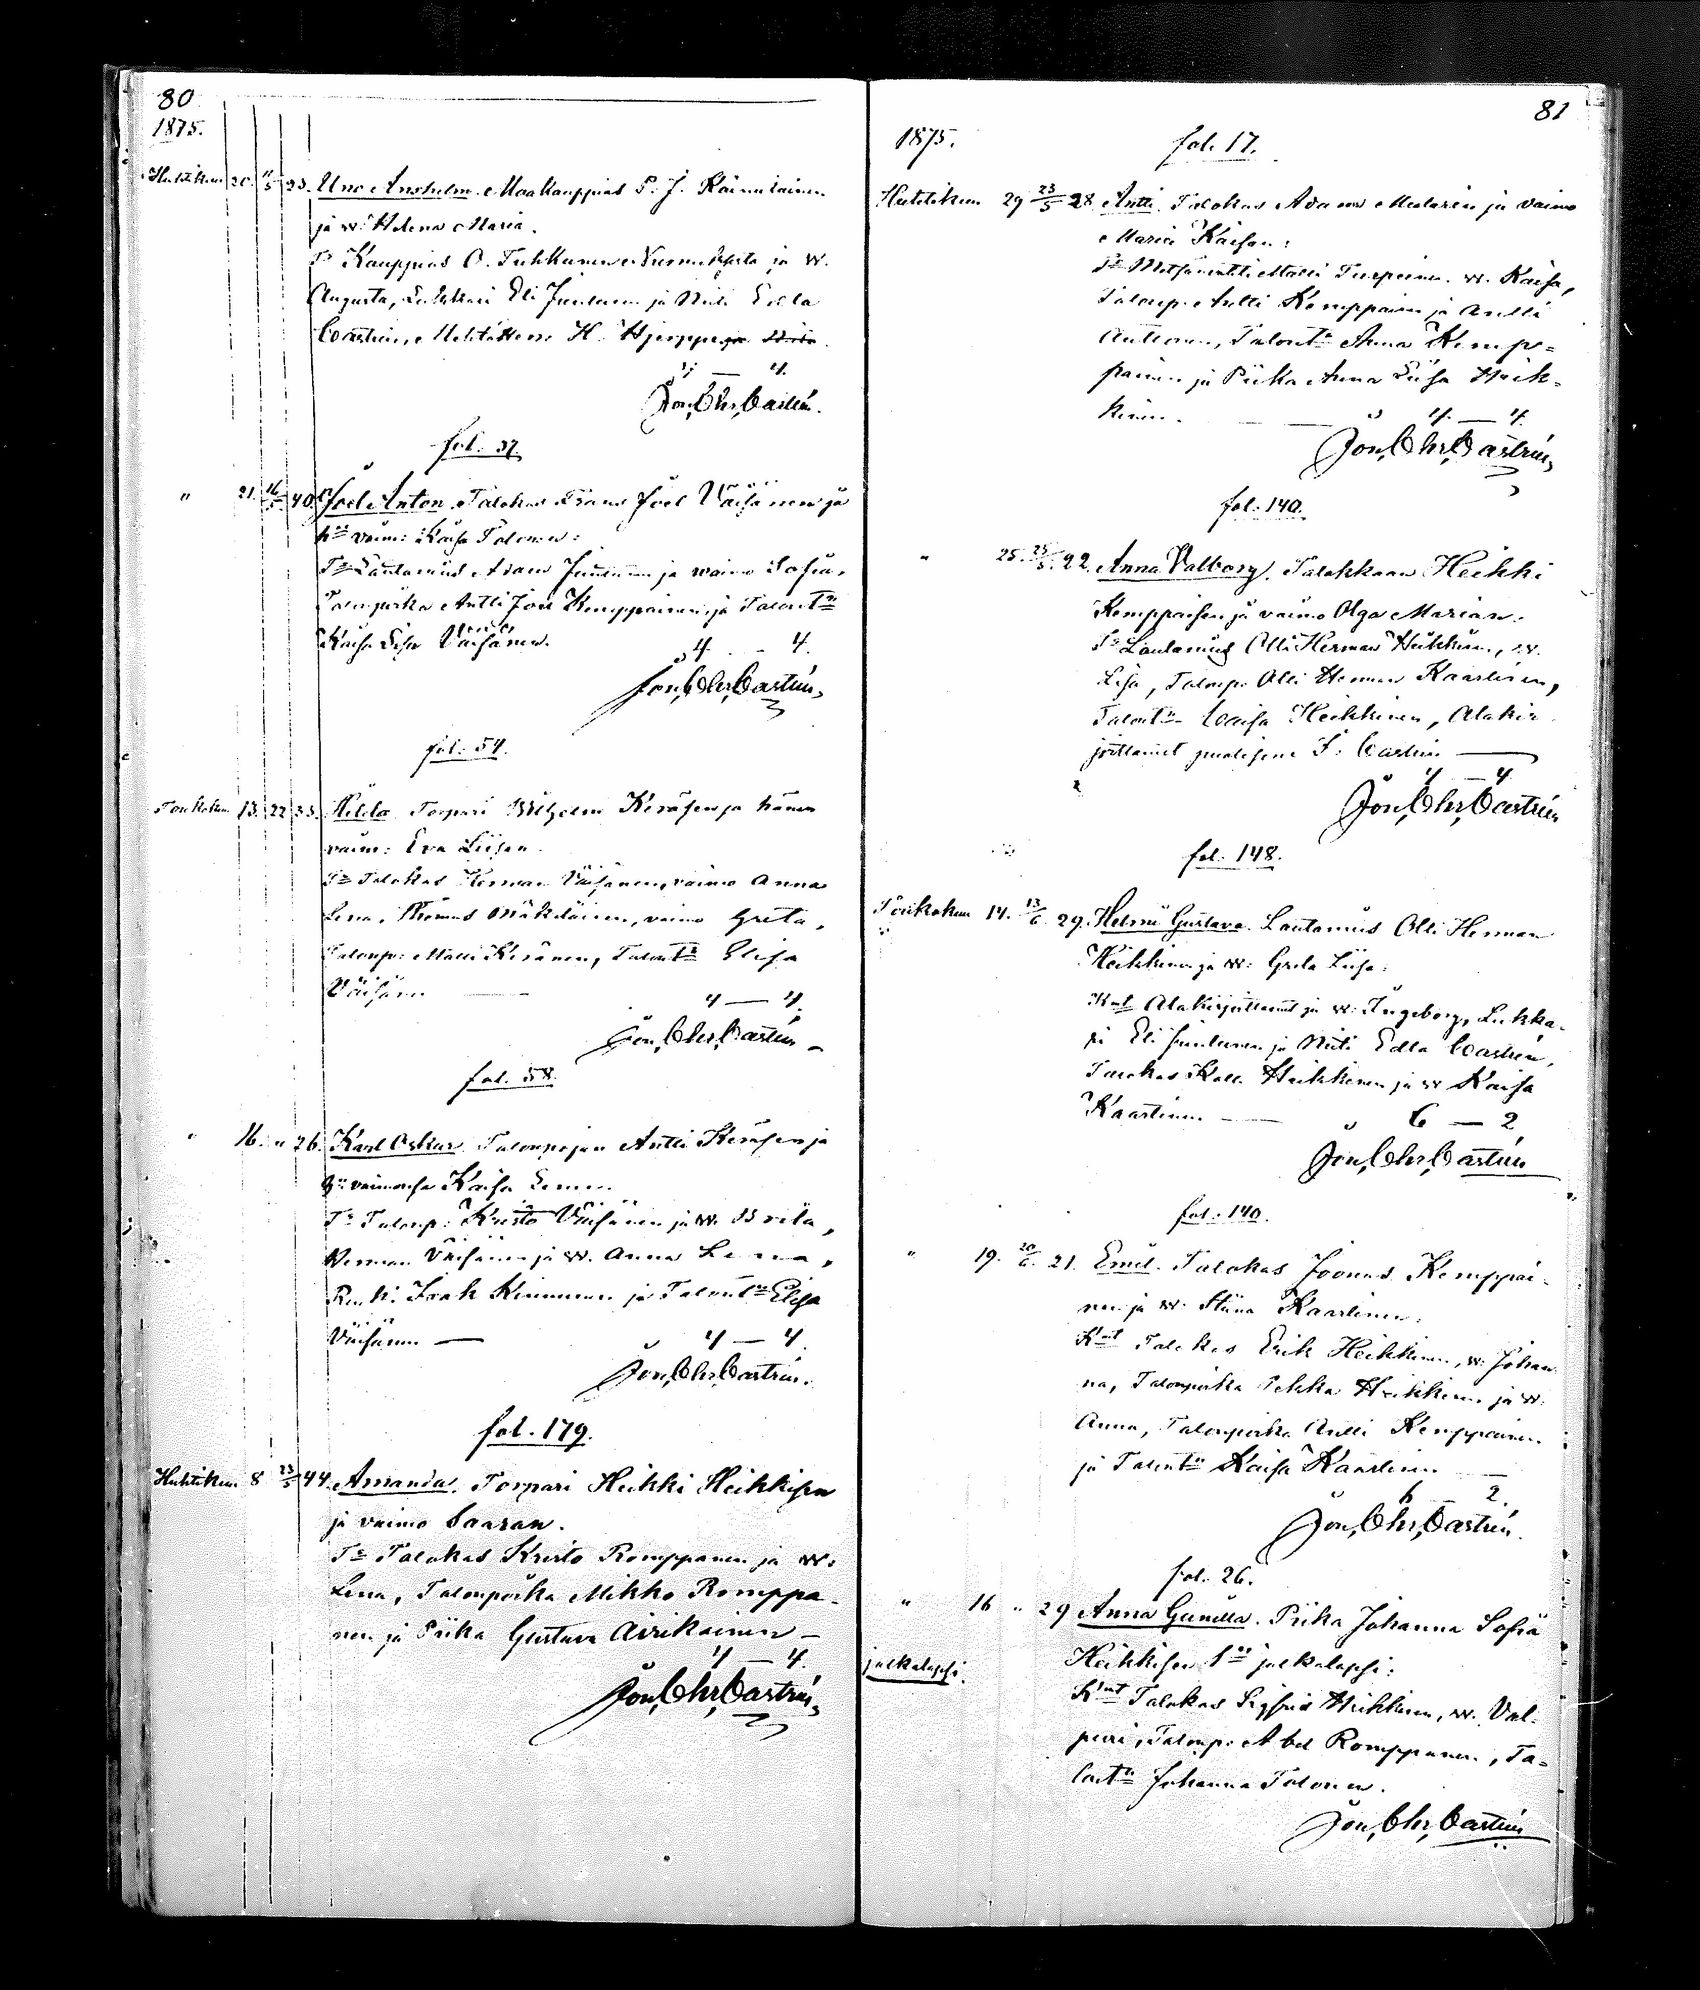 80
1875.
Huhtikuu 20. 11/5 23. Uno Anshelm. Maakauppias P. J. Kainulainen
ja w: Helena Maria.
Ts Kauppias O. Tuhkunen Nurmeksesta ja w.
Augusta, Lukkari Eli Juntunen ja Niiti Edla
Castrén, Mehtäherra H. Hjerppe
4 — 4.
Jon, Chr, Castrén.
fol. 37
" 21. 16/5 40. Joel Anton. Talokas Frans Joel Väisänen ja
hns vaim: Kaisa Talonen:
Ts Lautamies Adam Juntunen ja waimo Sofia,
Talonpoika Antti Joel Kemppainen ja Talontr
Kaisa Lisa Väisänen.
4 - 4.
Jon, Chr, Castrén,
fol. 54.
Toukokuu 13. 22 33. Hilda Torpari Wilhelm Keräsen ja hänen
vaim: Eva Liisan.
Ts Talokas Herman Väisänen, vaimo Anna
Lena, Thomas Mäkeläinen, vaimo Greta,
Talonp: Matti Keränen, Talontr Elisa
Väisänen —
4 — 4.
Jon, Chr, Castrén
fol. 58.
" 16. " 26. Karl Oskar. Talonpojan Antti Keräsen ja
vaimonsa Kaisa
Ts Talonp: Kristo Väisänen ja w. Brita,
Herman Väisänen ja w. Anna Lena,
Renki Isak Kinnunen ja Talontr Elisa
Väisänen —
4 — 4.
Jon, Chr, Castrén.
fol. 179.
Huhtikuu 8 23/5 44. Amanda. Torpari Heikki Heikkisen
ja vaimo Saaran.
Ts Talokas Kristo Romppanen ja w:
Lena, Talonpoika Mikko Romppa-
nen ja Piika Gustava Airikainen —
4 — 4.
Jon, Chr, Castrén,
81
1875. fol. 17.
Huhtikuu 29 23/5 28 Antti. Talokas Adam Mularin ja vaimo
Maria Kaisan:
Ts Metsävahti Matti Turpeinen w. Kaisa,
Talonp. Antti Kemppainen ja Antti
Anttonen, Talontr Anna Kemp=
painen ja Piika Anna Liisa Heik-
kinen.
4. — 4.
Jon, Chr, Castrén,
fol. 140.
" 25. 23/5. 22. Anna Valborg. Talokkaan Heikki
Kemppaisen ja vaimo Olga Marian.
Ts Lautamies Olli Herman Heikkinen, w.
Lisa, Talonp. Olli Herman Kaartinen,
Talontr Caisa Heikkinen, Alakir
joittanut puolisone I. Castrén —
4 — 4
Jon, Chr, Castrén
fol. 148.
Toukokuu 14. 13/6 29. Helmi Gustava. Lautamies Olli Herman
Heikkinen ja w: Greta Liisa:
Kmt Alakirjoittanut ja w: Ingeborg, Lukka-
ri Eli Juntunen ja Niiti Edla Castrén,
Talokas Kalle Heikkinen ja w Kaisa
Kaartinen. —
6 — 2
Jon, Chr, Castrén
fol. 140.
" 19. 20/6. 21. Emil. Talokas Joonas Kemppai-
nen ja w. Stiina Kaartinen:
Kmt Talokas Erik Heikkinen, w: Johan-
na, Talonpoika Pekka Heikkinen ja w:
Anna, Talonpoika Antti Kemppainen
ja Talontr Kaisa Kaartinen —
6 2.
Jon, Chr, Castrén.
fol. 26.
" 16 " 29 Anna Gunilla. Piika Johanna Sofia
jalkalapsi. Heikkisen 1s jalkalapsi:
Kmt Talokas Sigfrid Heikkinen, w. Val-
puri, Talonp: Abel Romppanen, Ta=
lontr Johanna Talonen.
Jon, Chr, Castrén